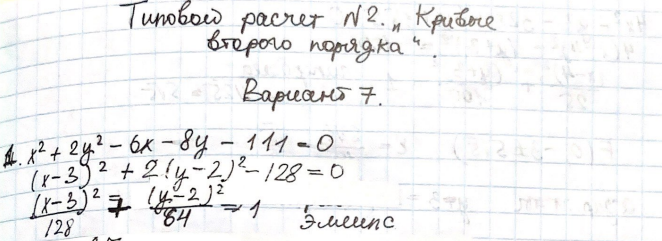 Типовой расчет №2. „Кривые
второго порядка“.
Вариант 7.
1. x² + 2y² - 6x - 8y - 111 = 0
(x-3)² + 2(y-2)² - 128 = 0
(x-3)²/128 + (y-2)²/64 = 1 эллипс